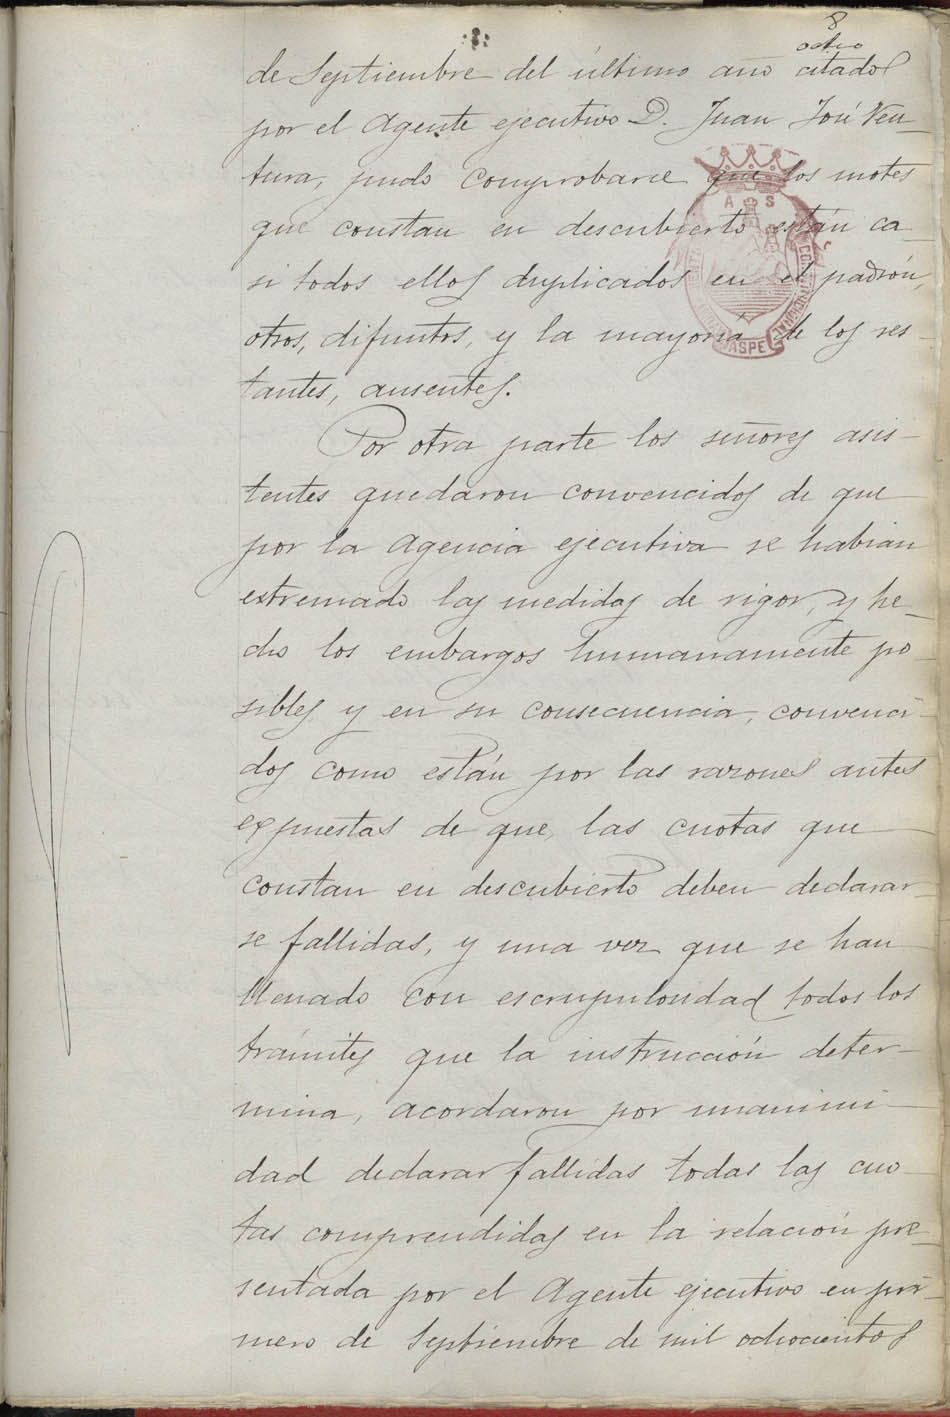 8
ocho
de Septiembre del último año citado
por el Agente ejecutivo D. Juan José Ven-
tura, pudo comprobarse que los motes
que constan en descubierto están ca-
si todos ellos duplicados en el padrón,
otros, difuntos, y la mayoría de los res-
tantes, ausentes.
Por otra parte los señores asis-
tentes quedaron convencidos de que
por la Agencia ejecutiva se habian
extremado las medidas de rigor, y he-
cho los embargos humanamente po-
sibles y en su consecuencia, convenci-
dos como están por las razones antes
expuestas de que, las cuotas que
constan en descubierto deben declarar-
se fallidas, y una vez que se han
llenado con escrupulosidad todos los
trámites que la instrucción deter-
mina, acordaron por unanimi-
dad declarar fallidas todas las cuo-
tas comprendidas en la relación pre-
sentada por el Agente ejecutivo en pri-
mero de Septiembre de mil ochocientos
A S
CONSTITUCIONAL
ASPE